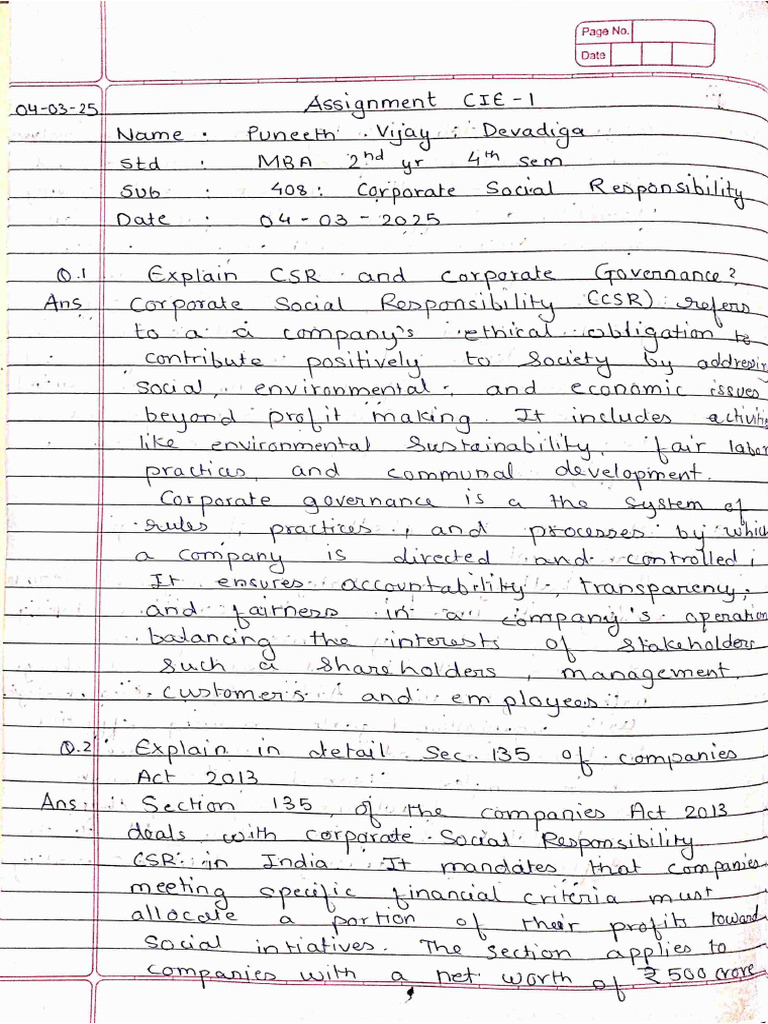 Page No.
Date
04-03-25 Assignment CIE-1
Name : Puneeth Vijay Devadiga
Std : MBA 2nd yr 4th sem
Sub : 408: Corporate Social Responsibility
Date : 04-03-2025
Q.1 Explain CSR and Corporate Governance?
Ans Corporate Social Responsibility (CSR) refers
to a a company's ethical obligation to
contribute positively to society by addressin
social, environmental, and economic issues
beyond profit making. It includes activitie
like environmental sustainability, fair labor
practices, and communal development.
Corporate governance is a the system of
rules, practices, and processes by which
a company is directed and controlled;
It ensures accountability, transparency,
and fairness in a company's operation
balancing the interests of stakeholders
such a shareholders, management,
customers and employees.
Q.2 Explain in detail Sec.135 of companies
Act 2013
Ans: Section 135 of the companies Act 2013
deals with corporate Social Responsibility
CSR in India. It mandates that companies
meeting specific financial criteria must
allocate a portion of their profits toward
social intiatives. The section applies to
companies with a net worth of ₹500 crore